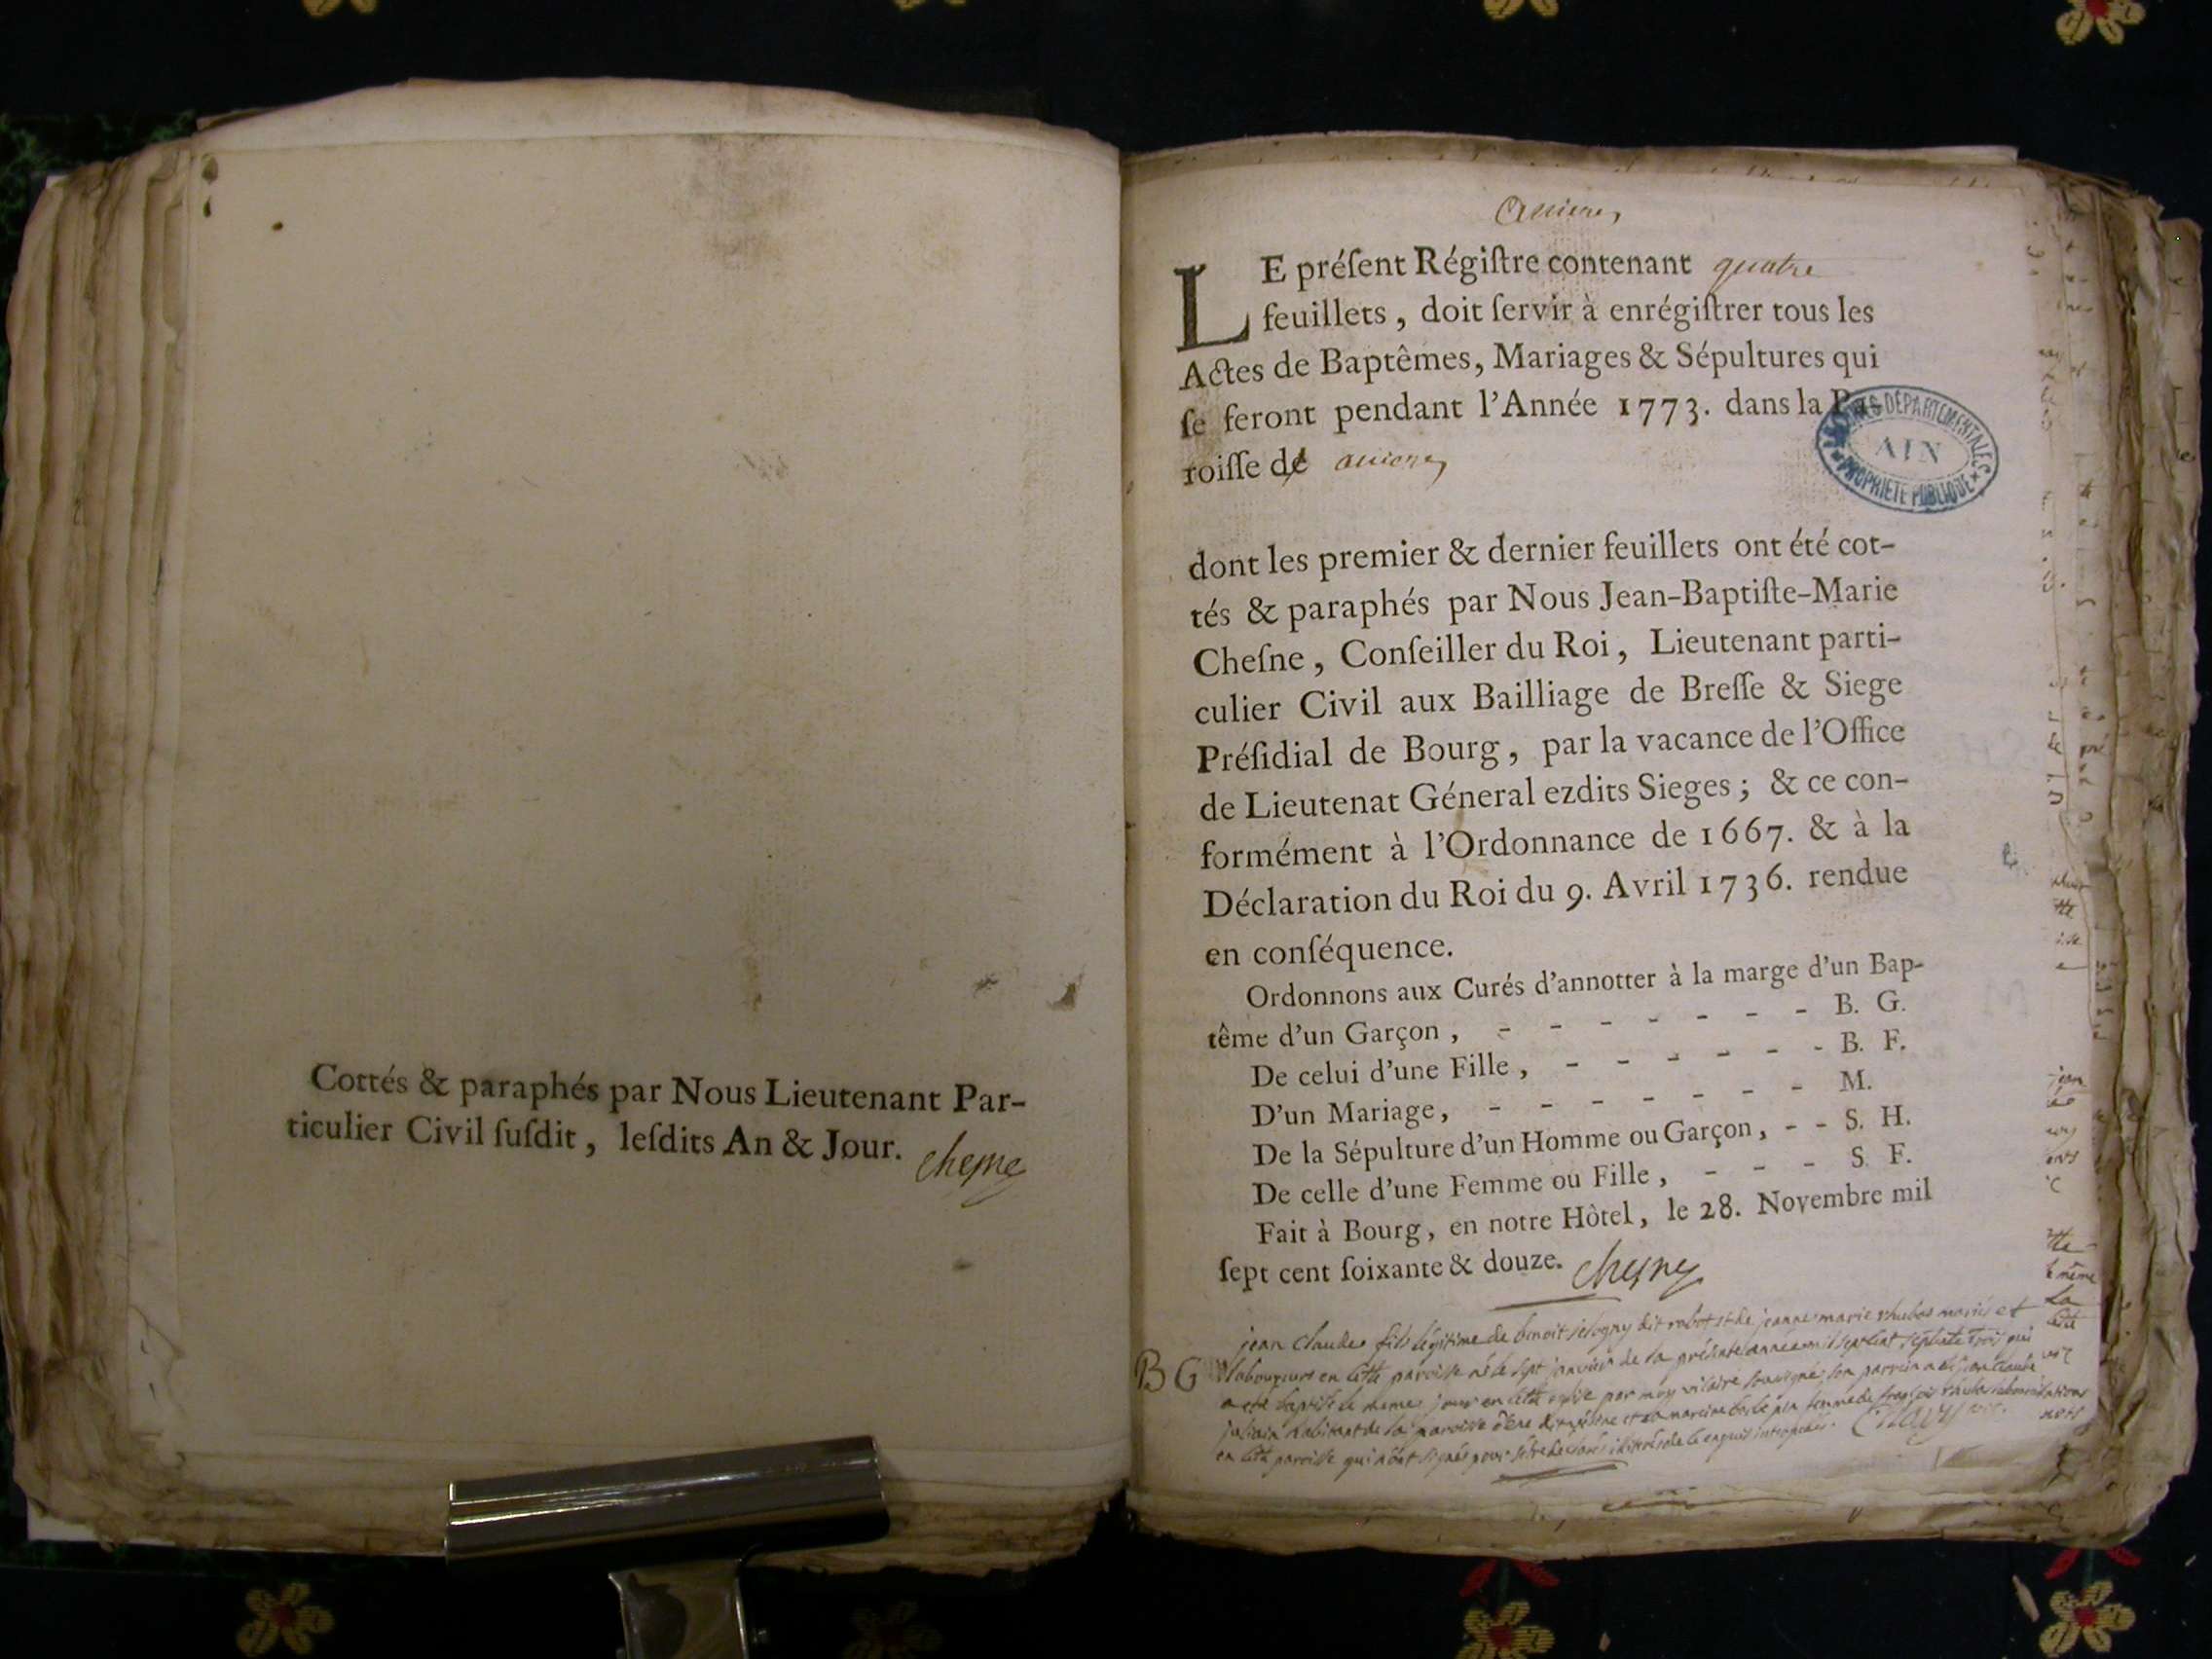 Cottés & paraphés par Nous Lieutenant Par-
ticulier Civil ſuſdit, leſdits An & Jour.
chesne
LE préſent Régiſtre contenant quatre
feuillets, doit ſervir à enrégiſtrer tous les
Actes de Baptêmes, Mariages & Sépultures qui
ſe feront pendant l'Année 1773. dans la Pa-
roiſſe de
ARCHIVES DÉPARTEMENTALES
AIN
PROPRIÉTÉ PUBLIQUE
dont les premier & dernier feuillets ont été cot-
tés & paraphés par Nous Jean-Baptiſte-Marie
Cheſne, Conſeiller du Roi, Lieutenant parti-
culier Civil aux Bailliage de Breſſe & Siege
Préſidial de Bourg, par la vacance de l'Office
de Lieutenat Géneral ezdits Sieges; & ce con-
formément à l'Ordonnance de 1667. & à la
Déclaration du Roi du 9. Avril 1736. rendue
en conſéquence.
Ordonnons aux Curés d'annotter à la marge d'un Bap-
tême d'un Garçon, - - - - - - - B. G.
De celui d'une Fille, - - - - - - B. F.
D'un Mariage, - - - - - - - M.
De la Sépulture d'un Homme ou Garçon, - - S. H.
De celle d'une Femme ou Fille, - - - S. F.
Fait à Bourg, en notre Hòtel, le 28. Novembre mil
ſept cent ſoixante & douze. chesne
jean Claude fils légitime de benoit dit robot et de jeanne marie mariés et
B G laboureurs en cette paroisse né le sept janvier de la présente année mil sept cent septante trois qui
a été baptisé le meme jour en cette eglise par moy vicaire soussigné, son parrein a été jean claude
habitant de la paroisse et sa mareine femme de
en cette paroisse qui n'ont signés pour illiterés de ce enquis interpelés.